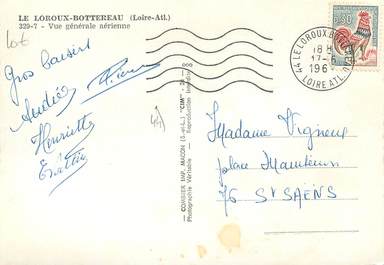 LE LOROUX-BOTTEREAU (Loire-Atl.)
329-7 - Vue générale aérienne
Lot
Gros baisers
Andrée Pierre
Henriette
44
COMBIER IMP. MACON (S.-et-L.) "CIM"
Photographie Véritable - Reproduction Interdite
44 LE LOROUX-B
18 H
17-
196
LOIRE ATL.
0,30
Madame Vigneux
place
76 St SAËNS